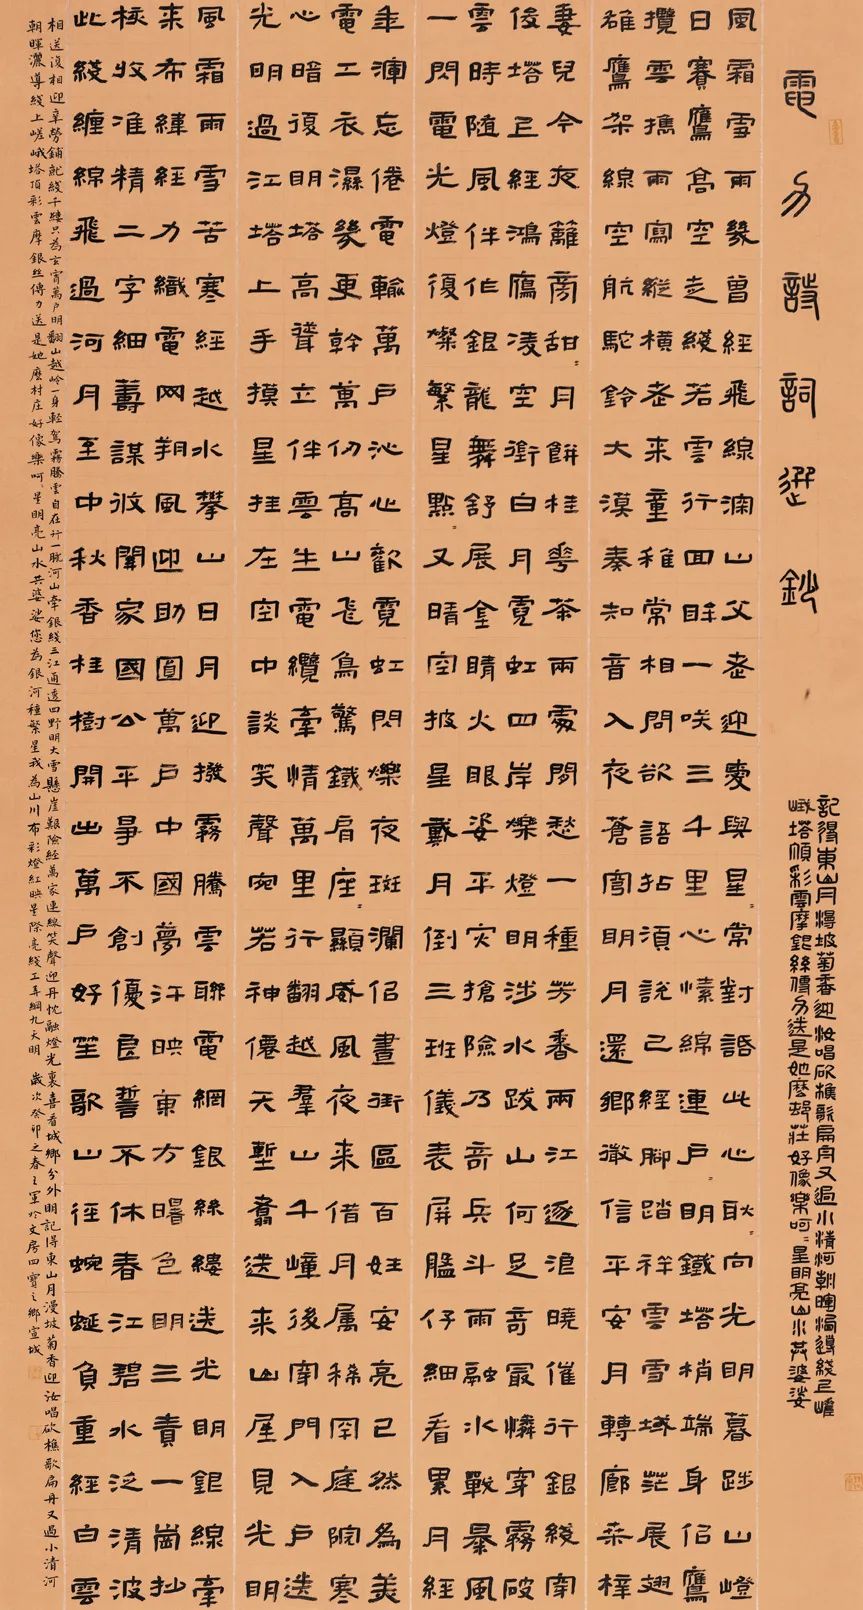 電力詩詞選鈔
記得東山月漫坡菊香迎汝唱砍樵歌扁舟又過小清河朝暉濃導綫上嵯
峨塔頂彩雲摩銀絲傳力送是她麼村莊好像樂呵=星明亮山水共婆娑
風霜雪雨幾曾經飛線深山父老迎慶與星=常對語此心耿=向光明暮踄山嶝
日賽鷹高空走綫若雲行回眸一咲三千里心愫綿連戶=明鐵塔梢端身侶鷹
攬雲攜雨寫縱橫老来童稚常相問欲語拈須說已經腳踏祥雲雪域茫展翅
雄鷹架線空航駝鈴大漠奏知音入夜蒼穹明月還鄉徹信平安月轉廊桒梓
妻兒今夜籬旁甜=月餅桂花茶兩處閒愁一種芳香兩江逐浪曉催行銀綫穿
後塔已經鴻鷹凌空銜白月霓虹四岸爍燈明涉水跋山何足奇最憐穿霧破
雲時随風伴作銀龍舞舒展金睛火眼姿平灾搶險乃奇兵斗雨融冰戰暴風
一閃電光燈復燦繁星點=又晴空披星戴月倒三班儀表屏仔細看累月經
年渾忘倦電輸萬戶沁心歡霓虹閃爍夜斑斕侶晝街區百安亮已然為美
電工衣濕幾更幹萬仞高山飛鳥驚鐵肩座=顯威風夜来借月屬稀罔庭院寒
心暗復明塔高聳立伴雲生電纜牽情萬里行翻越群山千嶂後門入戶送
光明過江塔上手摸星挂在空中談笑聲宛若神僊天塹翥送来山屋見光明
風霜雨雪苦寒經越水攀山日月迎撥霧騰雲聯電網銀絲縷送光明銀線牽
来布緯經力織電网朔風迎助圓萬戶中國夢汗映東方曙色明三責一崗抄
核收准精二字細籌謀開家國公平爭不創優良誓不休春江碧水泛清波
此綫纏綿飛過河月至中秋香桂樹開出萬戶好笙歌山徑蜿蜒負重經白雲
相送復相迎辛勞鋪就綫千縷只為玄宵萬戶明翻山越岭一身輕駕霧騰雲自在行一脈河山牽銀綫三江通遠四野明大雪懸崖艱險經萬家連線笑聲迎丹忱融燈光裏喜看城鄉分外明記得東山月漫坡菊香迎汝唱砍樵歌扁舟又過小清河
朝暉濃導綫上嵯峨塔頂彩雲摩銀丝傳力送是她麼村庄好像樂呵=星明亮山水共婆娑您為銀河種繁星我為山川布彩燈紅映星際亮綫工弄綱九天明 歲次癸卯之春之軍於文房四寶之鄉宣城